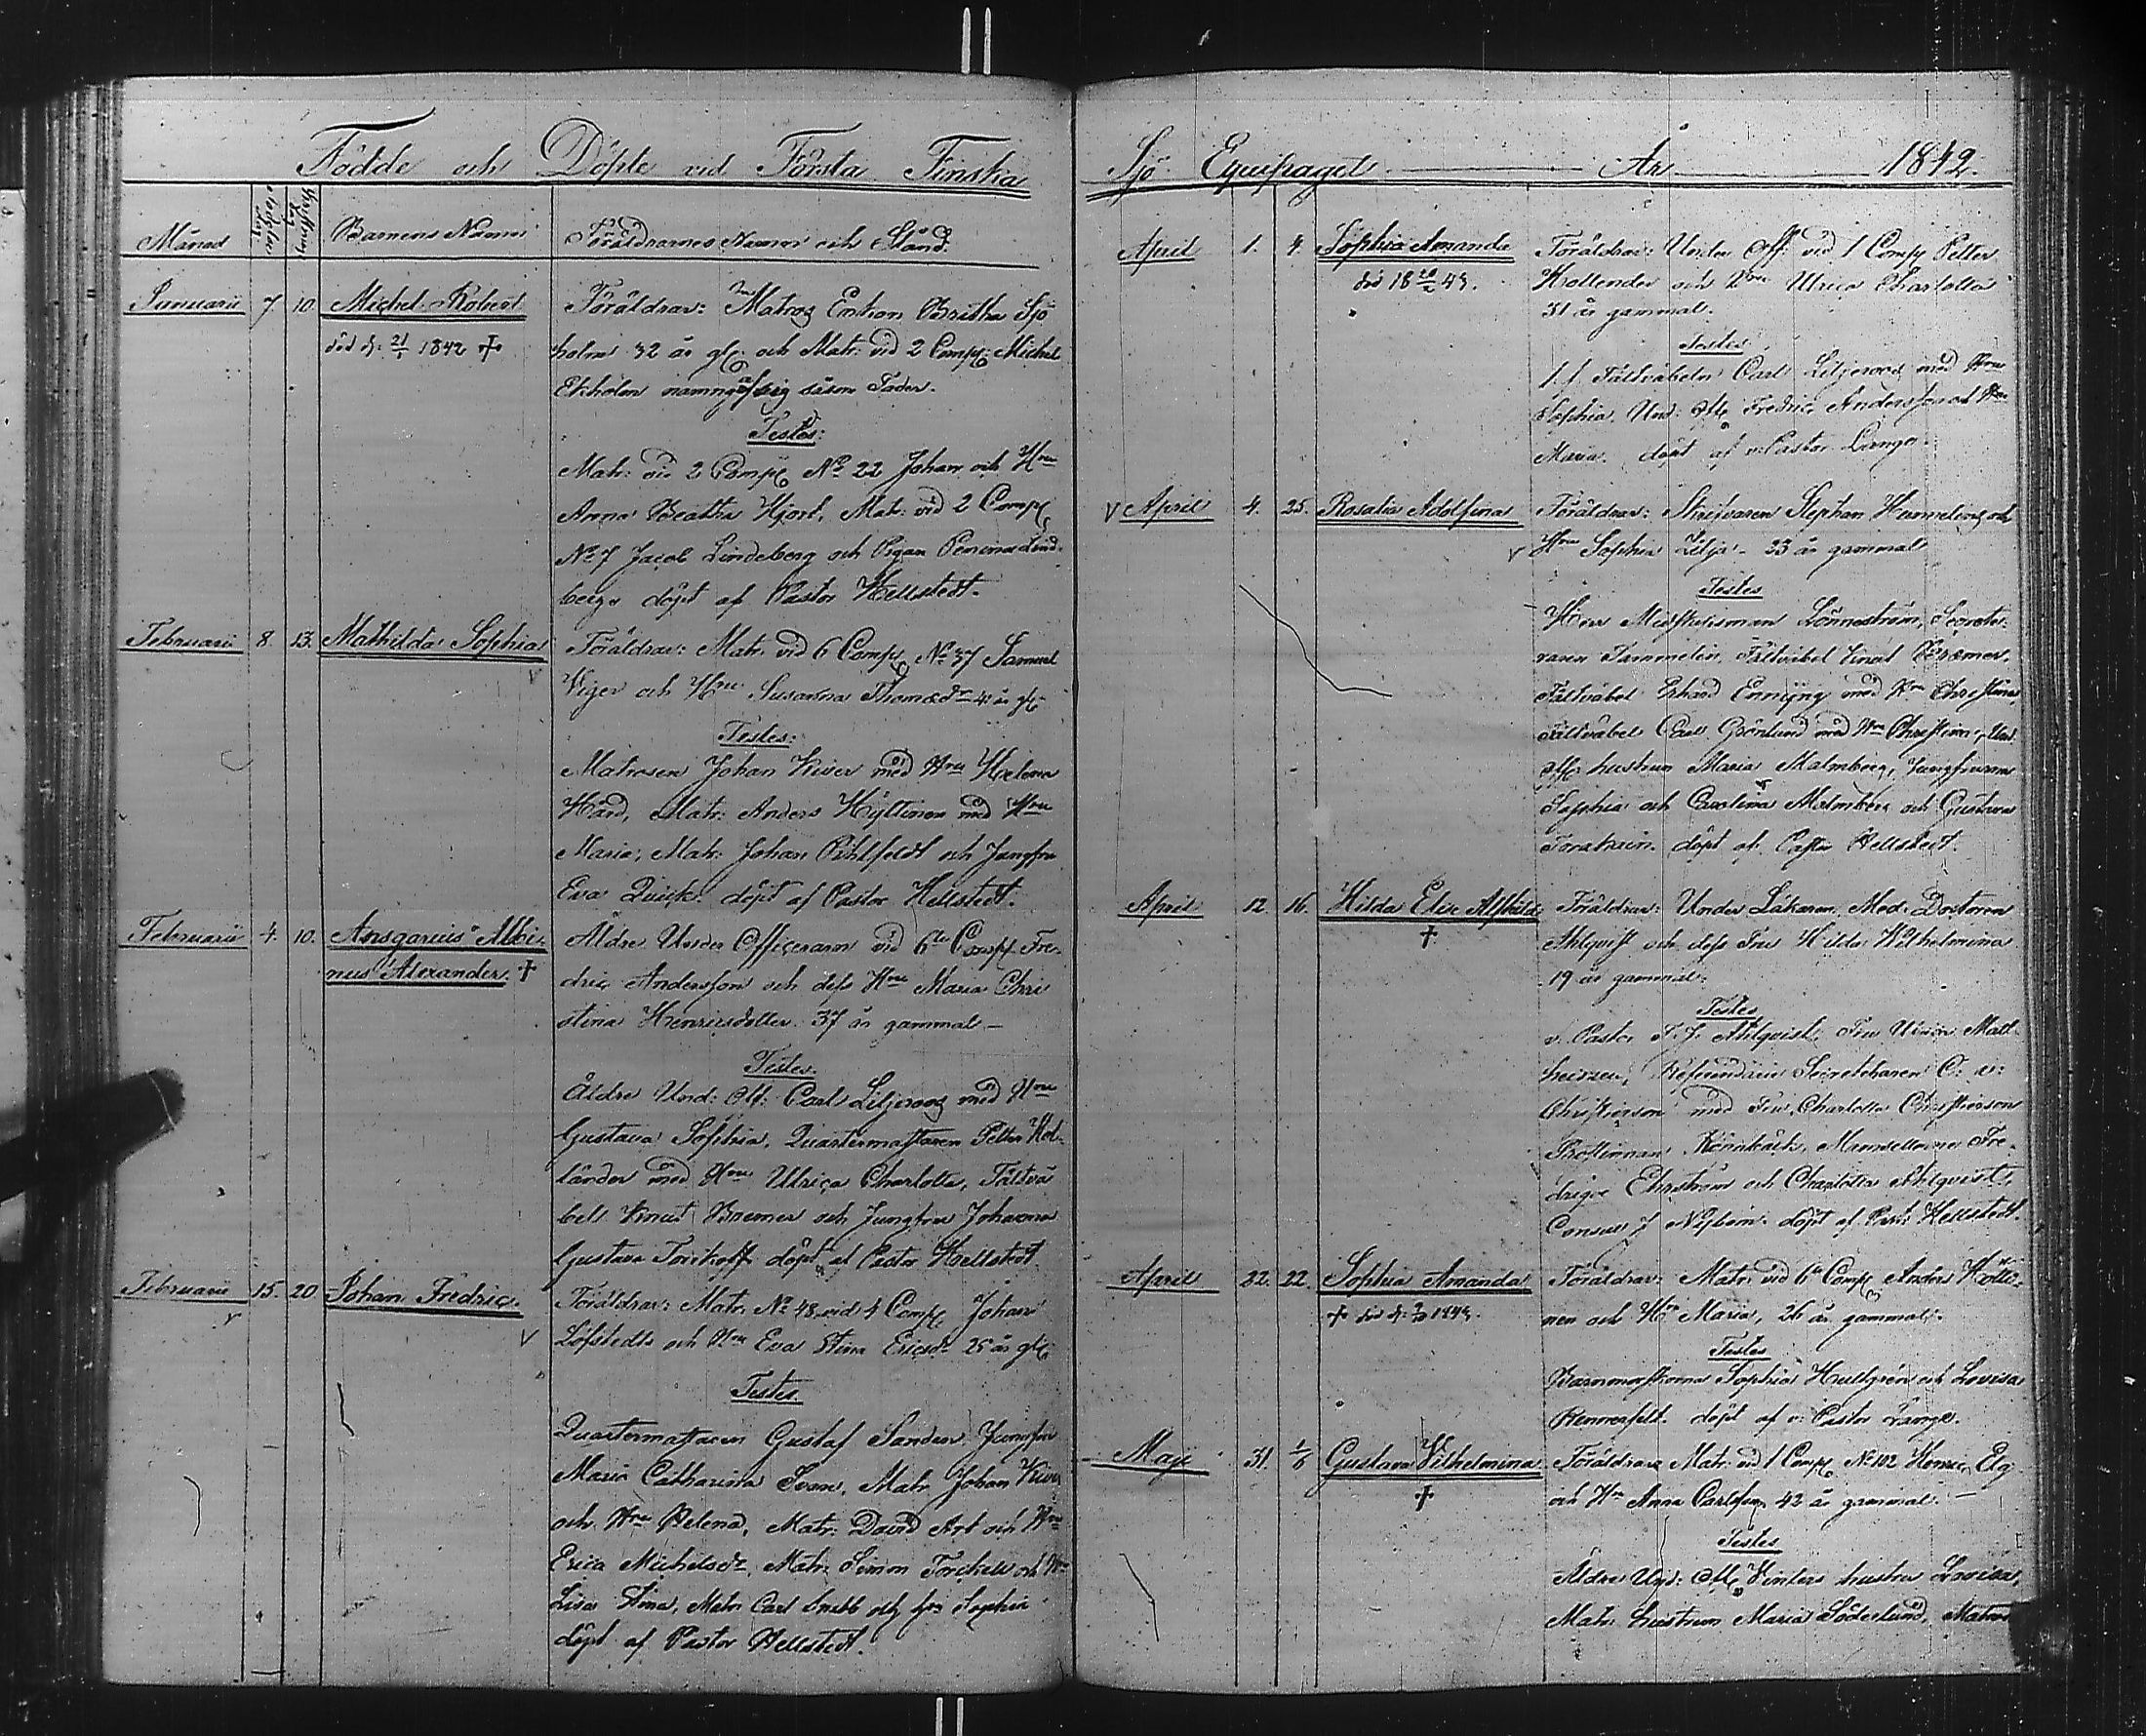 Födde och Döpte vid Första Finska
Månad
Födelse dag
Christnings dag
Barnens Namn
Föräldrarnes Namn och Stånd
Januarii 7. 10. Michel Robert
död d: 21/1 1842 +
Föräldrar: Matros Enkan Britha Sjö
holm 32 år gl: och Matr: vid 2 Comp: Michel
Ekholm namngaf sig såsom Fader.
Testes:
Matr: vid 2 Comp: No 22 Johan och Hru
Anna Beatha Hjort, Matr: vid 2 Comp:
No 7 Jacob Lindeberg och Pigan Lind-
berg döpt af Pastor Hellstedt.
Februarii 8. 13. Mathilda Sophia
Föräldrar: Matr. vid 6 Comp: No 37 Samuel
Viger och Hru Susanna Thomædr 41 år gl:
Testes:
Matrosen Johan Kiver med Hru Helena
Hård, Matr: Anders Hyttinen med Hru
Maria, Matr: Johan Pihlfeldt och Jungfru
Eva Quick. döpt af Pastor Hellstedt.
Februarii 4. 10. Ansgarius Albi-
nus Alexander. +
Äldre Under Officeraren vid 6te Comp. Fre-
dric Andersson och dess Hru Maria Chri
stina Henricsdotter 37 år gammal —
Testes.
Äldre Und: Off: Carl Liljeroos med Hru
Gustava Sophia, Quartermästaren Petter Hol-
länder med Hru Ulrica Charlotta, Fältvä
bel Knut Bremer och Jungfru Johanna
Gustava döpt af Pastor Hellstedt.
Februarii 15. 20 Johan Fredric.
Föräldrar: Matr. No 48 vid 4 Comp. Johan
Löfstedt och Hru Eva Stina Ericsdr 25 år gl:
Testes.
Quartermästaren Gustaf Sander, Jungfru
Maria Catharina Matr. Johan Kiver
och Hru Helena, Matr: David Art och Hru
Erica Michelsdr, Matr: Simon Torckell och Hru
Lisa Stina, Matr. Carl Snabb och Sophia
döpt af Pastor Hellstedt.
Sjö Equipaget År 1842.
April 1. 4. Sophia Amanda
död 18 43.
Föräldrar: Under Off: vid 1 Comp Petter
Hollender och Hru Ulrica Charlotta
31 år gammal.
Testes
Fältväbeln Carl Liljeroos med Hru
Sophia, Und: Off: Fredric Andersson och Hru
Maria. döpt af v: Pastor
V April 4. 25. Rosalia Adolfina
Föräldrar: Skrifvaren Stephan Hummelin och
Hru Sophia Lilja 33 år gammal
Testes
Herr Midshipsman Lönneström, Secrete-
raren Tammelin, Fältväbel Knut Bremer,
Fältväbel Erhard med Hru Christina,
Fältväbel Carl Grönlund med Hru Christina, Und:
Off: hustrun Maria Malmberg, Jungfrurna
Sophia och Carolina Malmberg och Gustava
döpt af Pastor Hellstedt
April 12. 16. Hilda Elise Alfhild
+
Föräldrar: Under Läkaren Med: Doctoren
Ahlquist och dess Fru Hilda Wilhelmina
19 år gammal.
Testes
v. Pastor Ahlquist, Fru Ulrica Mat-
Secreteraren
Christierson med Fru Charlotta Christierson
Mamsellerna Fre-
drique Ehrström och Charlotta Ahlquist,
Consul J döpt af Pastor Hellstedt.
April 22. 22. Sophia Amanda
+ död d:
Föräldrar: Matr. vid 6te Comp: Anders
nen och Hru Maria, 26 år gammal.
Testes
Barnmorskorna Sophia Hultgrén och Lovisa
Rennerfelt. döpt af v: Pastor
Maji 31. 1/6 Gustava Vilhelmina
+
Föräldrar Matr: vid 1 Comp: No 102 Henric Elg
och Hru Anna Carlsson 42 år gammal. —
Testes
Äldre Und: Off: Vinters hustru Lovisa,
Matr: hustrun Maria Söderlund, Matros